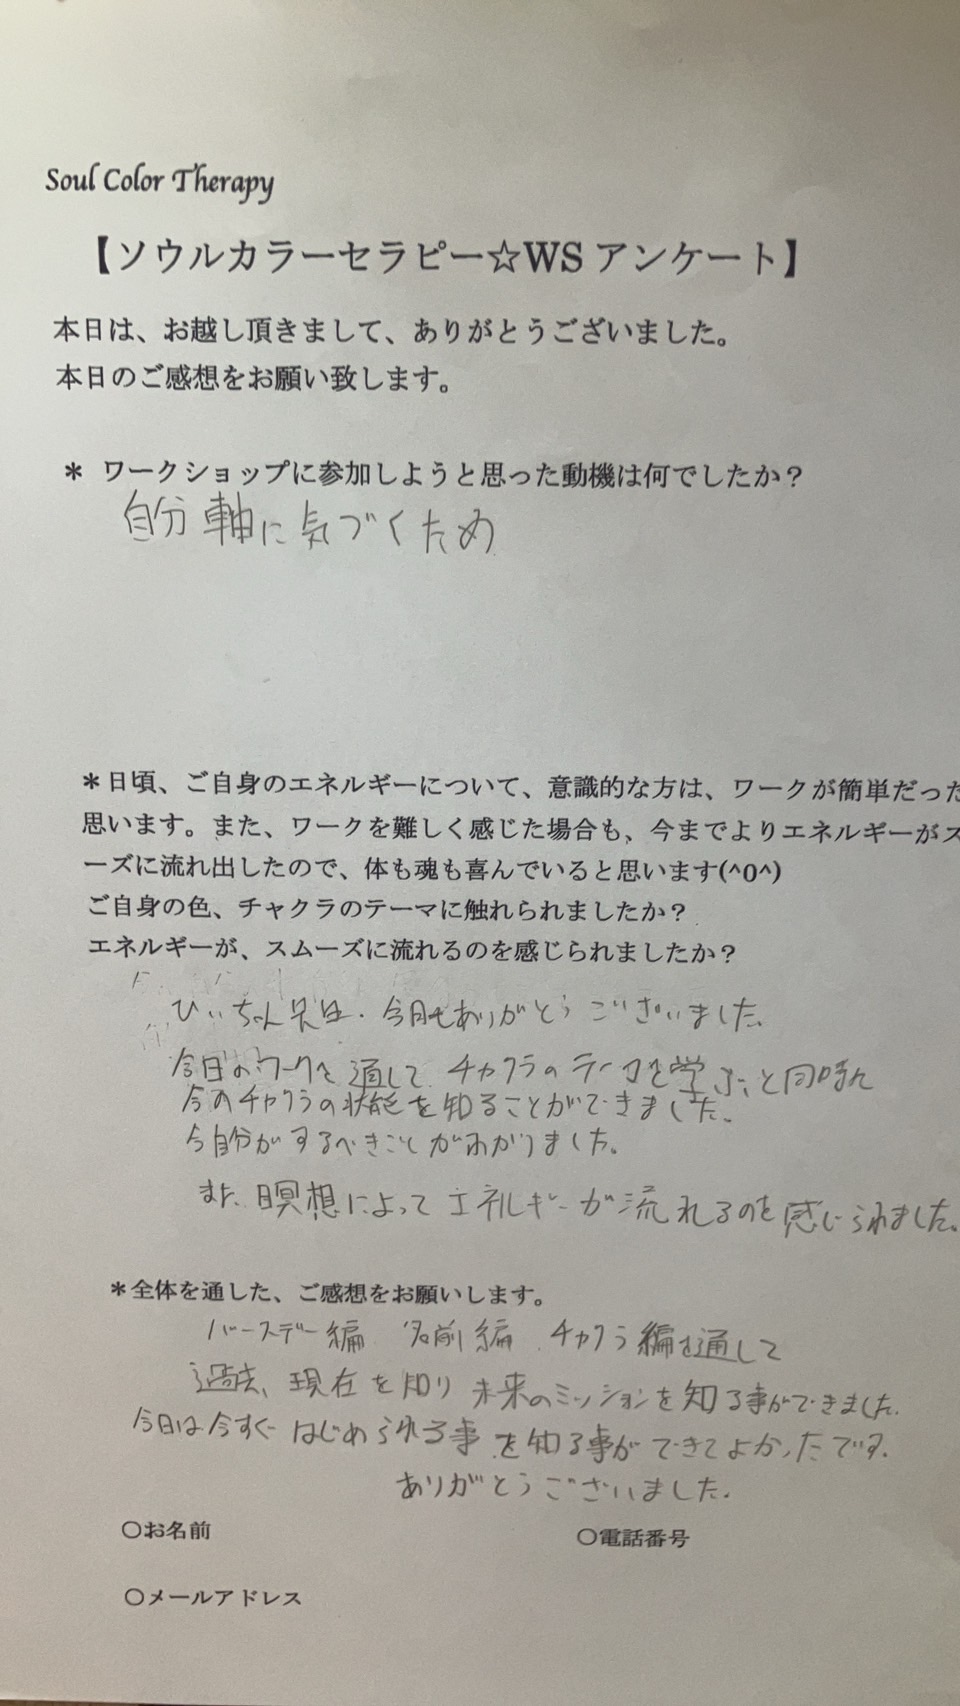 Soul Color Therapy
【ソウルカラーセラピー☆WS アンケート】
本日は、お越し頂きまして、ありがとうございました。
本日のご感想をお願い致します。
＊ ワークショップに参加しようと思った動機は何でしたか？
自分軸に気づくため
＊日頃、ご自身のエネルギーについて、意識的な方は、ワークが簡単だった
思います。また、ワークを難しく感じた場合も、今までよりエネルギーがス
ーズに流れ出したので、体も魂も喜んでいると思います(^0^)
ご自身の色、チャクラのテーマに触れられましたか？
エネルギーが、スムーズに流れるのを感じられましたか？
ひぃちゃん先生、今日もありがとうございました。
今日のワークを通して チャクラのテーマを学ぶと同時に
今のチャクラの状態を知ることができました。
今自分がするべきことがわかりました。
また、瞑想によってエネルギーが流れるのを感じられました。
＊全体を通した、ご感想をお願いします。
バースデー編、名前編、チャクラ編を通して
過去、現在を知り 未来のミッションを知る事ができました。
今日は今すぐはじめられる事を知る事ができてよかったです。
ありがとうございました。
〇お名前
〇電話番号
〇メールアドレス